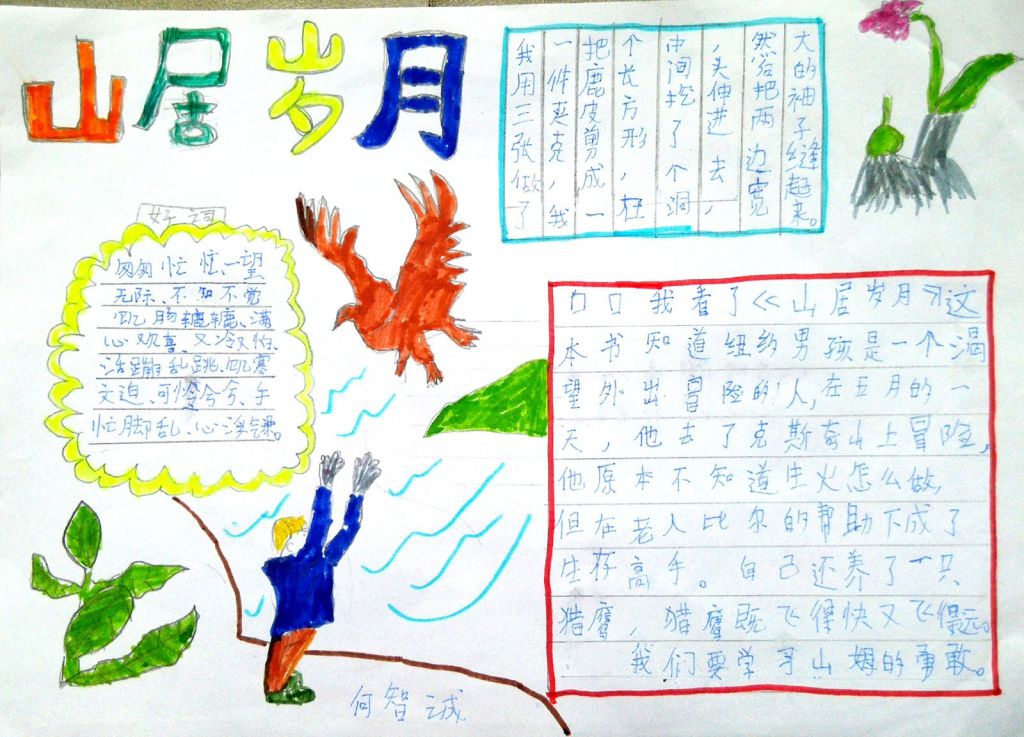 山居岁月
我用三张做了
一件夹克,我
把鹿皮剪成一
个长方形,在
中间挖了个洞
,头伸进去,
然后把两边宽
大的袖子缝起来。
好词
匆匆忙忙、一望
无际、不知不觉
饥肠辘辘、满
心欢喜、又冷又怕、
活蹦乱跳、饥寒
交迫、可怜兮兮、手
忙脚乱、心满
口口我看了《山居岁月》这
本书知道纽约男孩是一个渴
望外出冒险的人,在五月的一
天,他去了克斯奇山上冒险,
他原本不知道生火怎么做,
但在老人比尔的帮助下成了
生存高手。自己还养了一只
猎鹰,猎鹰既飞得快又飞得远。
我们要学习山姆的勇敢。
何智诚